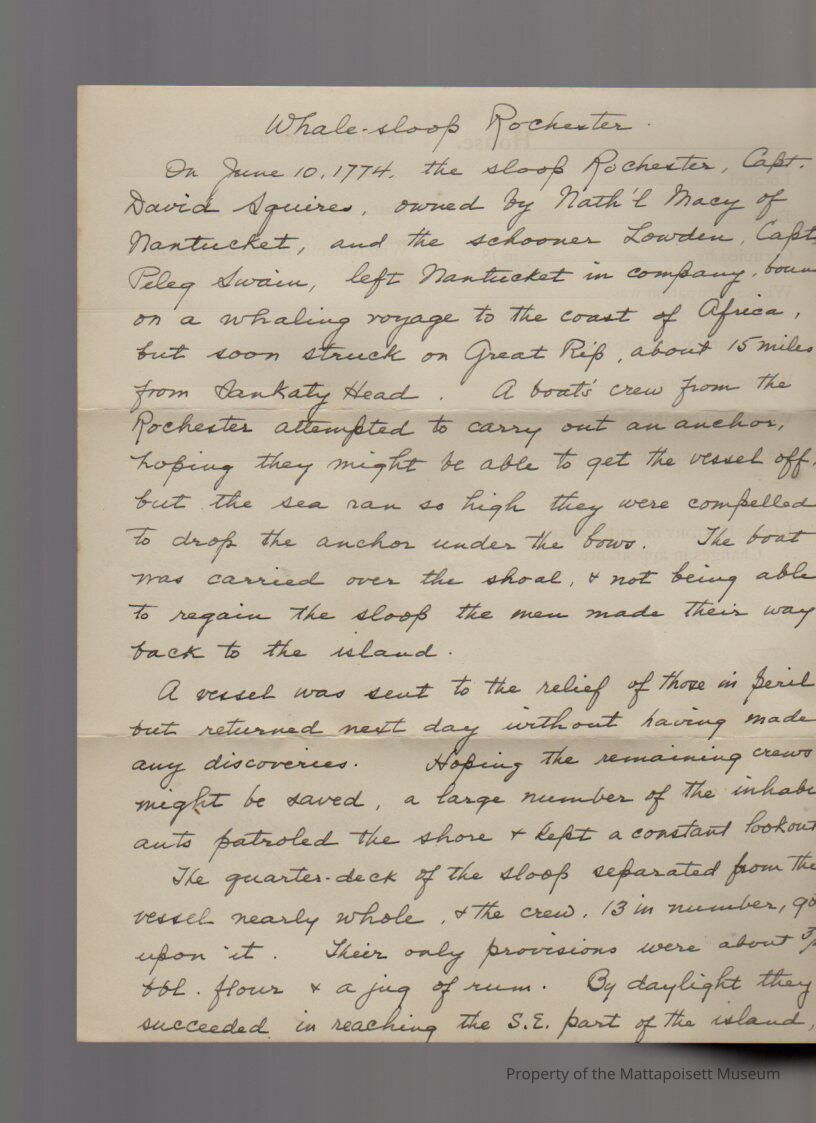 Whale-sloop Rochester.
On June 10, 1774, the sloop Rochester, Capt.
David Squires, owned by Nath'l Macy of
Nantucket, and the schooner Lowden, Capt
Peleg Swain, left Nantucket in company, boun
on a whaling voyage to the coast of Africa,
but soon struck on Great Rip, about 15 miles
from Sankaty Head. A boat's crew from the
Rochester attempted to carry out an anchor,
hoping they might be able to get the vessel off,
but the sea ran so high they were compelled
to drop the anchor under the bows. The boat
was carried over the shoal, & not being able
to regain the sloop the men made their way
back to the island.
A vessel was sent to the relief of those in peril
but returned next day without having made
any discoveries. Hoping the remaining crews
might be saved, a large number of the inhabi
ants patroled the shore & kept a constant lookout
The quarter-deck of the sloop separated from the
vessel nearly whole, & the crew, 13 in number, go
upon it. Their only provisions were about
bbl. flour & a jug of rum. By daylight they
succeeded in reaching the S.E. part of the island,
Property of the Mattapoisett Museum